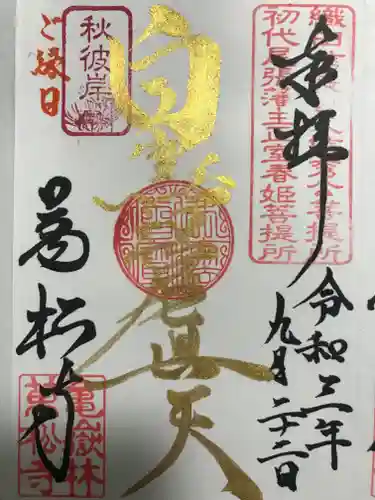 奉拝
令和二年
九月二十二日
初代尾張藩主正室春姫菩提所
白雪吒枳尼真天
秋彼岸
ご縁日
萬松寺
亀嶽林
萬松寺